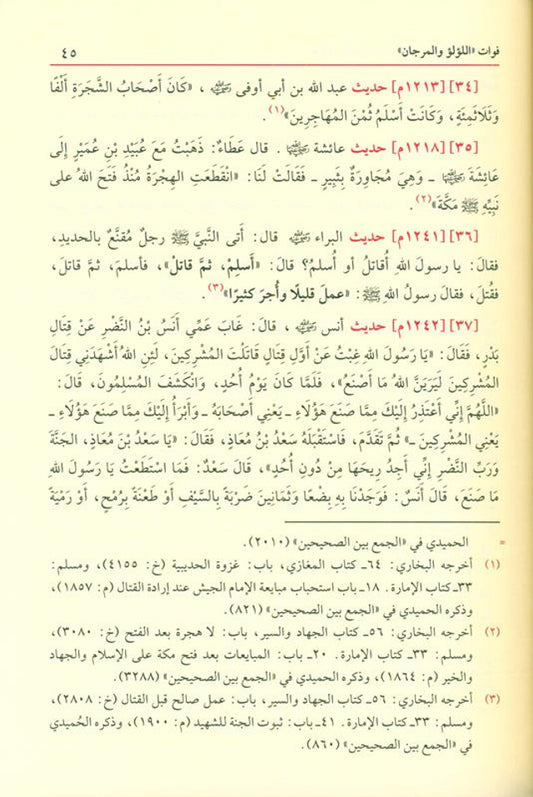 فوات «اللؤلؤ والمرجان» ٤٥
[٣٤] [١٢١٣م] حديث عبد الله بن أبي أوفى ﷺ، «كَانَ أَصْحَابُ الشَّجَرَةِ أَلْفًا
وَثَلَاثَمِئَةٍ، وَكَانَتْ أَسْلَمُ ثُمْنَ المُهَاجِرِينَ»(١).
[٣٥] [١٢١٨م] حديث عائشة. قال عَطَاءٌ: ذَهَبْتُ مَعَ عُبَيْدِ بْنِ عُمَيْرٍ إِلَى
عَائِشَةَ ـ وَهِيَ مُجَاوِرَةٌ بِثَبِيرٍ ـ فَقَالَتْ لَنَا: «انْقَطَعَتِ الهِجْرَةُ مُنْذُ فَتَحَ اللهُ عَلى
نَبِيِّهِ ﷺ مَكَّةَ»(٢).
[٣٦] [١٢٤١م] حديث البراء قال: أَتى النَّبيَّ ﷺ رجلٌ مُقنَّعٌ بالحديدِ،
فقالَ: يا رسولَ اللهِ أُقاتلُ أو أُسلمُ؟ قالَ: «أَسلِمْ، ثمَّ قاتلْ»، فأسلمَ، ثمَّ قاتلَ،
فقُتلَ، فقالَ رسولُ اللهِ ﷺ: «عملَ قليلًا وأُجرَ كثيرًا»(٣).
[٣٧] [١٢٤٢م] حديث أنس، قالَ: غَابَ عَمِّي أَنَسُ بْنُ النَّضْرِ عَنْ قِتَالِ
بَدْرٍ، فَقَالَ: «يَا رَسُولَ اللهِ غِبْتُ عَنْ أَوَّلِ قِتَالٍ قَاتَلْتَ المُشْرِكِينَ، لَئِنِ اللهُ أَشْهَدَنِي قِتَالَ
المُشْرِكِينَ لَيَرَيَنَّ اللهُ مَا أَصْنَعُ»، فَلَمَّا كَانَ يَوْمُ أُحُدٍ، وَانْكَشَفَ المُسْلِمُونَ، قَالَ:
«اللَّهُمَّ إِنِّي أَعْتَذِرُ إِلَيْكَ مِمَّا صَنَعَ هَؤُلَاءِ ـ يَعْنِي أَصْحَابَهُ ـ وَأَبْرَأُ إِلَيْكَ مِمَّا صَنَعَ هَؤُلَاءِ ـ
يَعْنِي المُشْرِكِينَ ـ» ثُمَّ تَقَدَّمَ، فَاسْتَقْبَلَهُ سَعْدُ بْنُ مُعَاذٍ، فَقَالَ: «يَا سَعْدُ بْنَ مُعَاذٍ، الجَنَّةَ
وَرَبِّ النَّضْرِ إِنِّي أَجِدُ رِيحَهَا مِنْ دُونِ أُحُدٍ»، قَالَ سَعْدٌ: فَمَا اسْتَطَعْتُ يَا رَسُولَ اللهِ
مَا صَنَعَ، قَالَ أَنَسٌ: فَوَجَدْنَا بِهِ بِضْعًا وَثَمَانِينَ ضَرْبَةً بِالسَّيْفِ أَوْ طَعْنَةً بِرُمْحٍ، أَوْ رَمْيَةً
= الحميدي في «الجمع بين الصحيحين» (٢٠١٠).
(١) أخرجه البخاري: ٦٤ـ كتاب المغازي، باب: غزوة الحديبية (خ: ٤١٥٥)، ومسلم:
٣٣ـ كتاب الإمارة. ١٨ـ باب استحباب مبايعة الإمام الجيش عند إرادة القتال (م: ١٨٥٧)،
وذكره الحميدي في «الجمع بين الصحيحين» (٨٢١).
(٢) أخرجه البخاري: ٥٦ـ كتاب الجهاد والسير، باب: لا هجرة بعد الفتح (خ: ٣٠٨٠)،
ومسلم: ٣٣ـ كتاب الإمارة. ٢٠ـ باب: المبايعات بعد فتح مكة على الإسلام والجهاد
والخير (م: ١٨٦٤)، وذكره الحميدي في «الجمع بين الصحيحين» (٣٢٨٨).
(٣) أخرجه البخاري: ٥٦ـ كتاب الجهاد والسير، باب: عمل صالح قبل القتال (خ: ٢٨٠٨)،
ومسلم: ٣٣ـ كتاب الإمارة. ٤١ـ باب: ثبوت الجنة للشهيد (م: ١٩٠٠)، وذكره الحُميدي
في «الجمع بين الصحيحين» (٨٦٠).